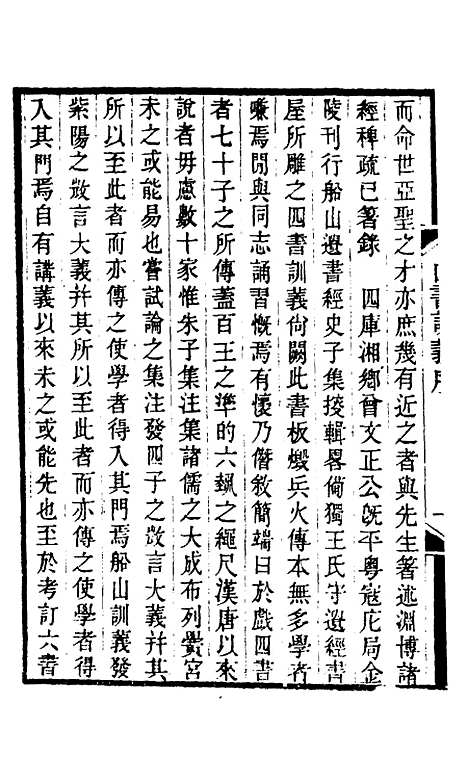 而命世亞聖之才亦庶幾有近之者與先生箸述淵博諸
經稗疏已箸錄　四庫湘鄉曾文正公旣平粵寇庀局金
陵刊行船山遺書經史子集㨗輯畧備獨王氏守遺經書
屋所雕之四書訓義尙闕此書板燬兵火傳本無多學者
慊焉閒與同志誦習慨焉有懷乃僭敘簡端曰於戲四書
者七十子之所傳蓋百王之準的六蓺之繩尺漢唐以來
說者毋慮數十家惟朱子集注集諸儒之大成布列黌宮
未之或能易也嘗試論之集注發四子之㪇言大義幷其
所以至此者而亦傳之使學者得入其門焉船山訓義發
紫陽之㪇言大義幷其所以至此者而亦傳之使學者得
入其門焉自有講義以來未之或能先也至於考訂六書
四書訓義序
一